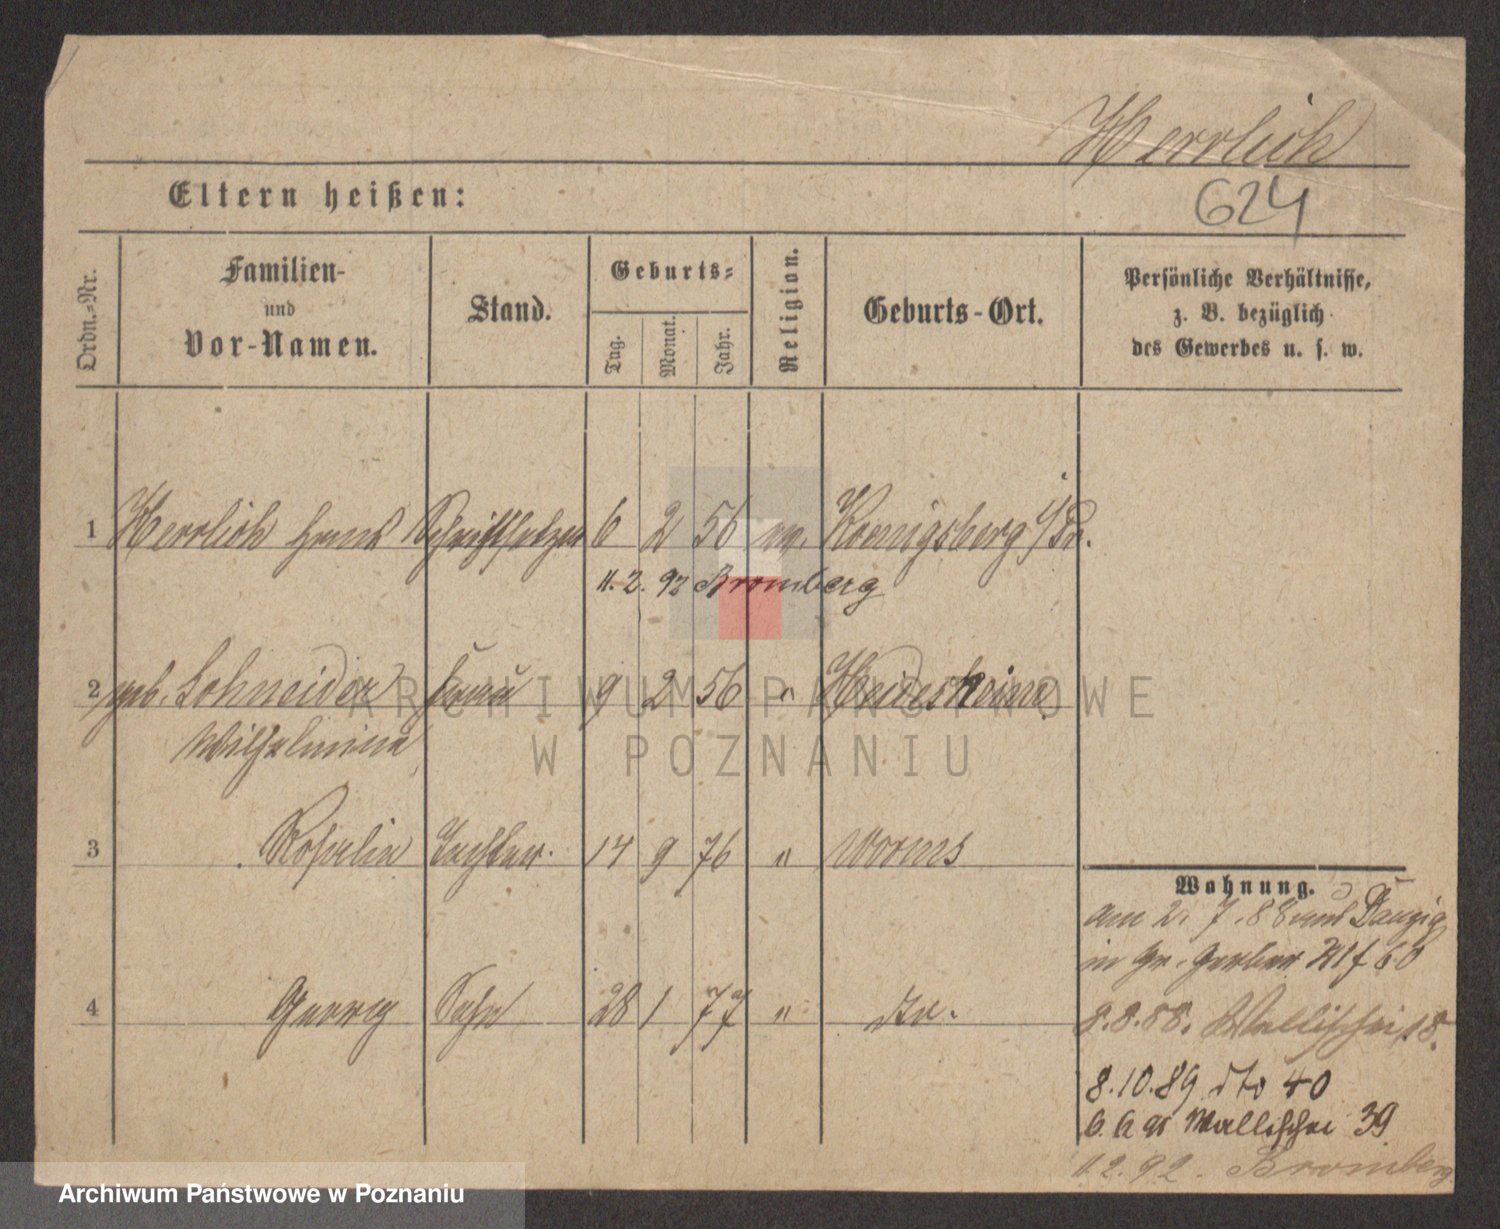 Herrlich
Eltern heißen:
624
Ordn.-Nr.
Familien-
und
Vor-Namen.
Stand.
Geburts-
Tag.
Monat.
Jahr.
Religion.
Geburts-Ort.
Persönliche Verhältnisse,
z. B. bezüglich
des Gewerbes u. s. w.
1 Herrlich Schriftsetzer 6 2 56 ev. Koenigsberg i/Pr.
11. 2. 92 Bromberg
2 geb. Schneider Frau 9 2 56 " Heidesheim
Wilhelmine
3 Rosalie Tochter. 14 9 76 " Worms
4 Georg Sohn 28 1 77 " dto.
Wohnung.
am 2. 7. 88 aus Danzig
in Gr. Gerber 60
8.8.88. Wallischei 18.
8.10.89 dto 40
Wallischei 39
11.2.92. Bromberg
ARCHIWUM PAŃSTWOWE
W POZNANIU
Archiwum Państwowe w Poznaniu